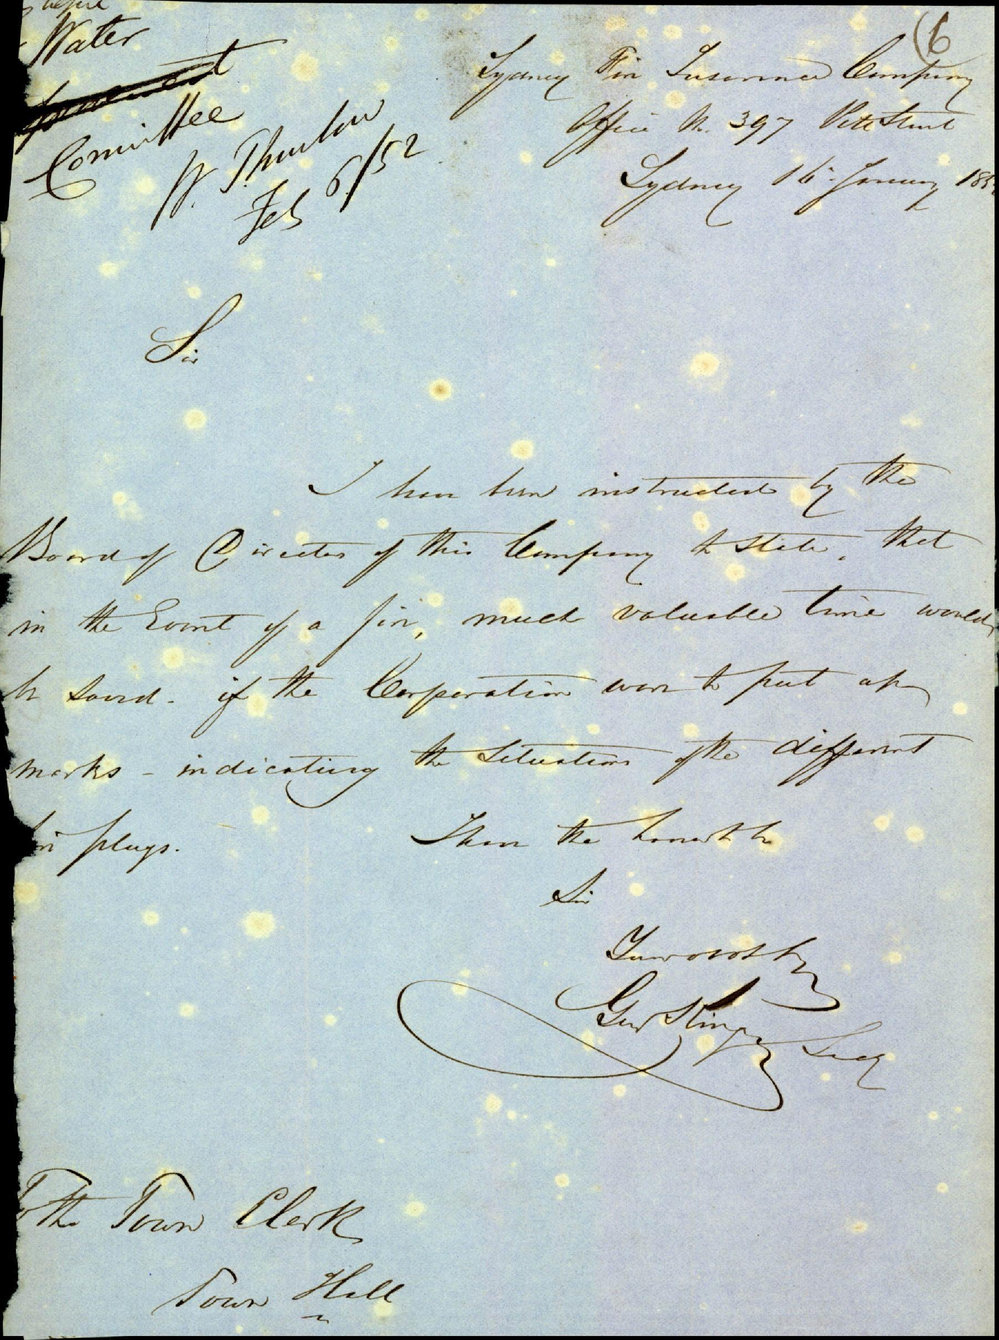 before
Water
Committee
W. Thurlow
Feb 6/52
(6
Sydney Fire Insurance Company
Office No. 397 Pitt Street
Sydney 16 January 185
Sir
I have been instructed by the
Board of Directors of this Company to state, that
in the Event of a fire, much valuable time would
be saved - if the Corporation were to put up
marks - indicating the Situation of the different
fire plugs. I have the honor to be
Sir
Your obt
Geo King Secy
To the Town Clerk
Town Hall